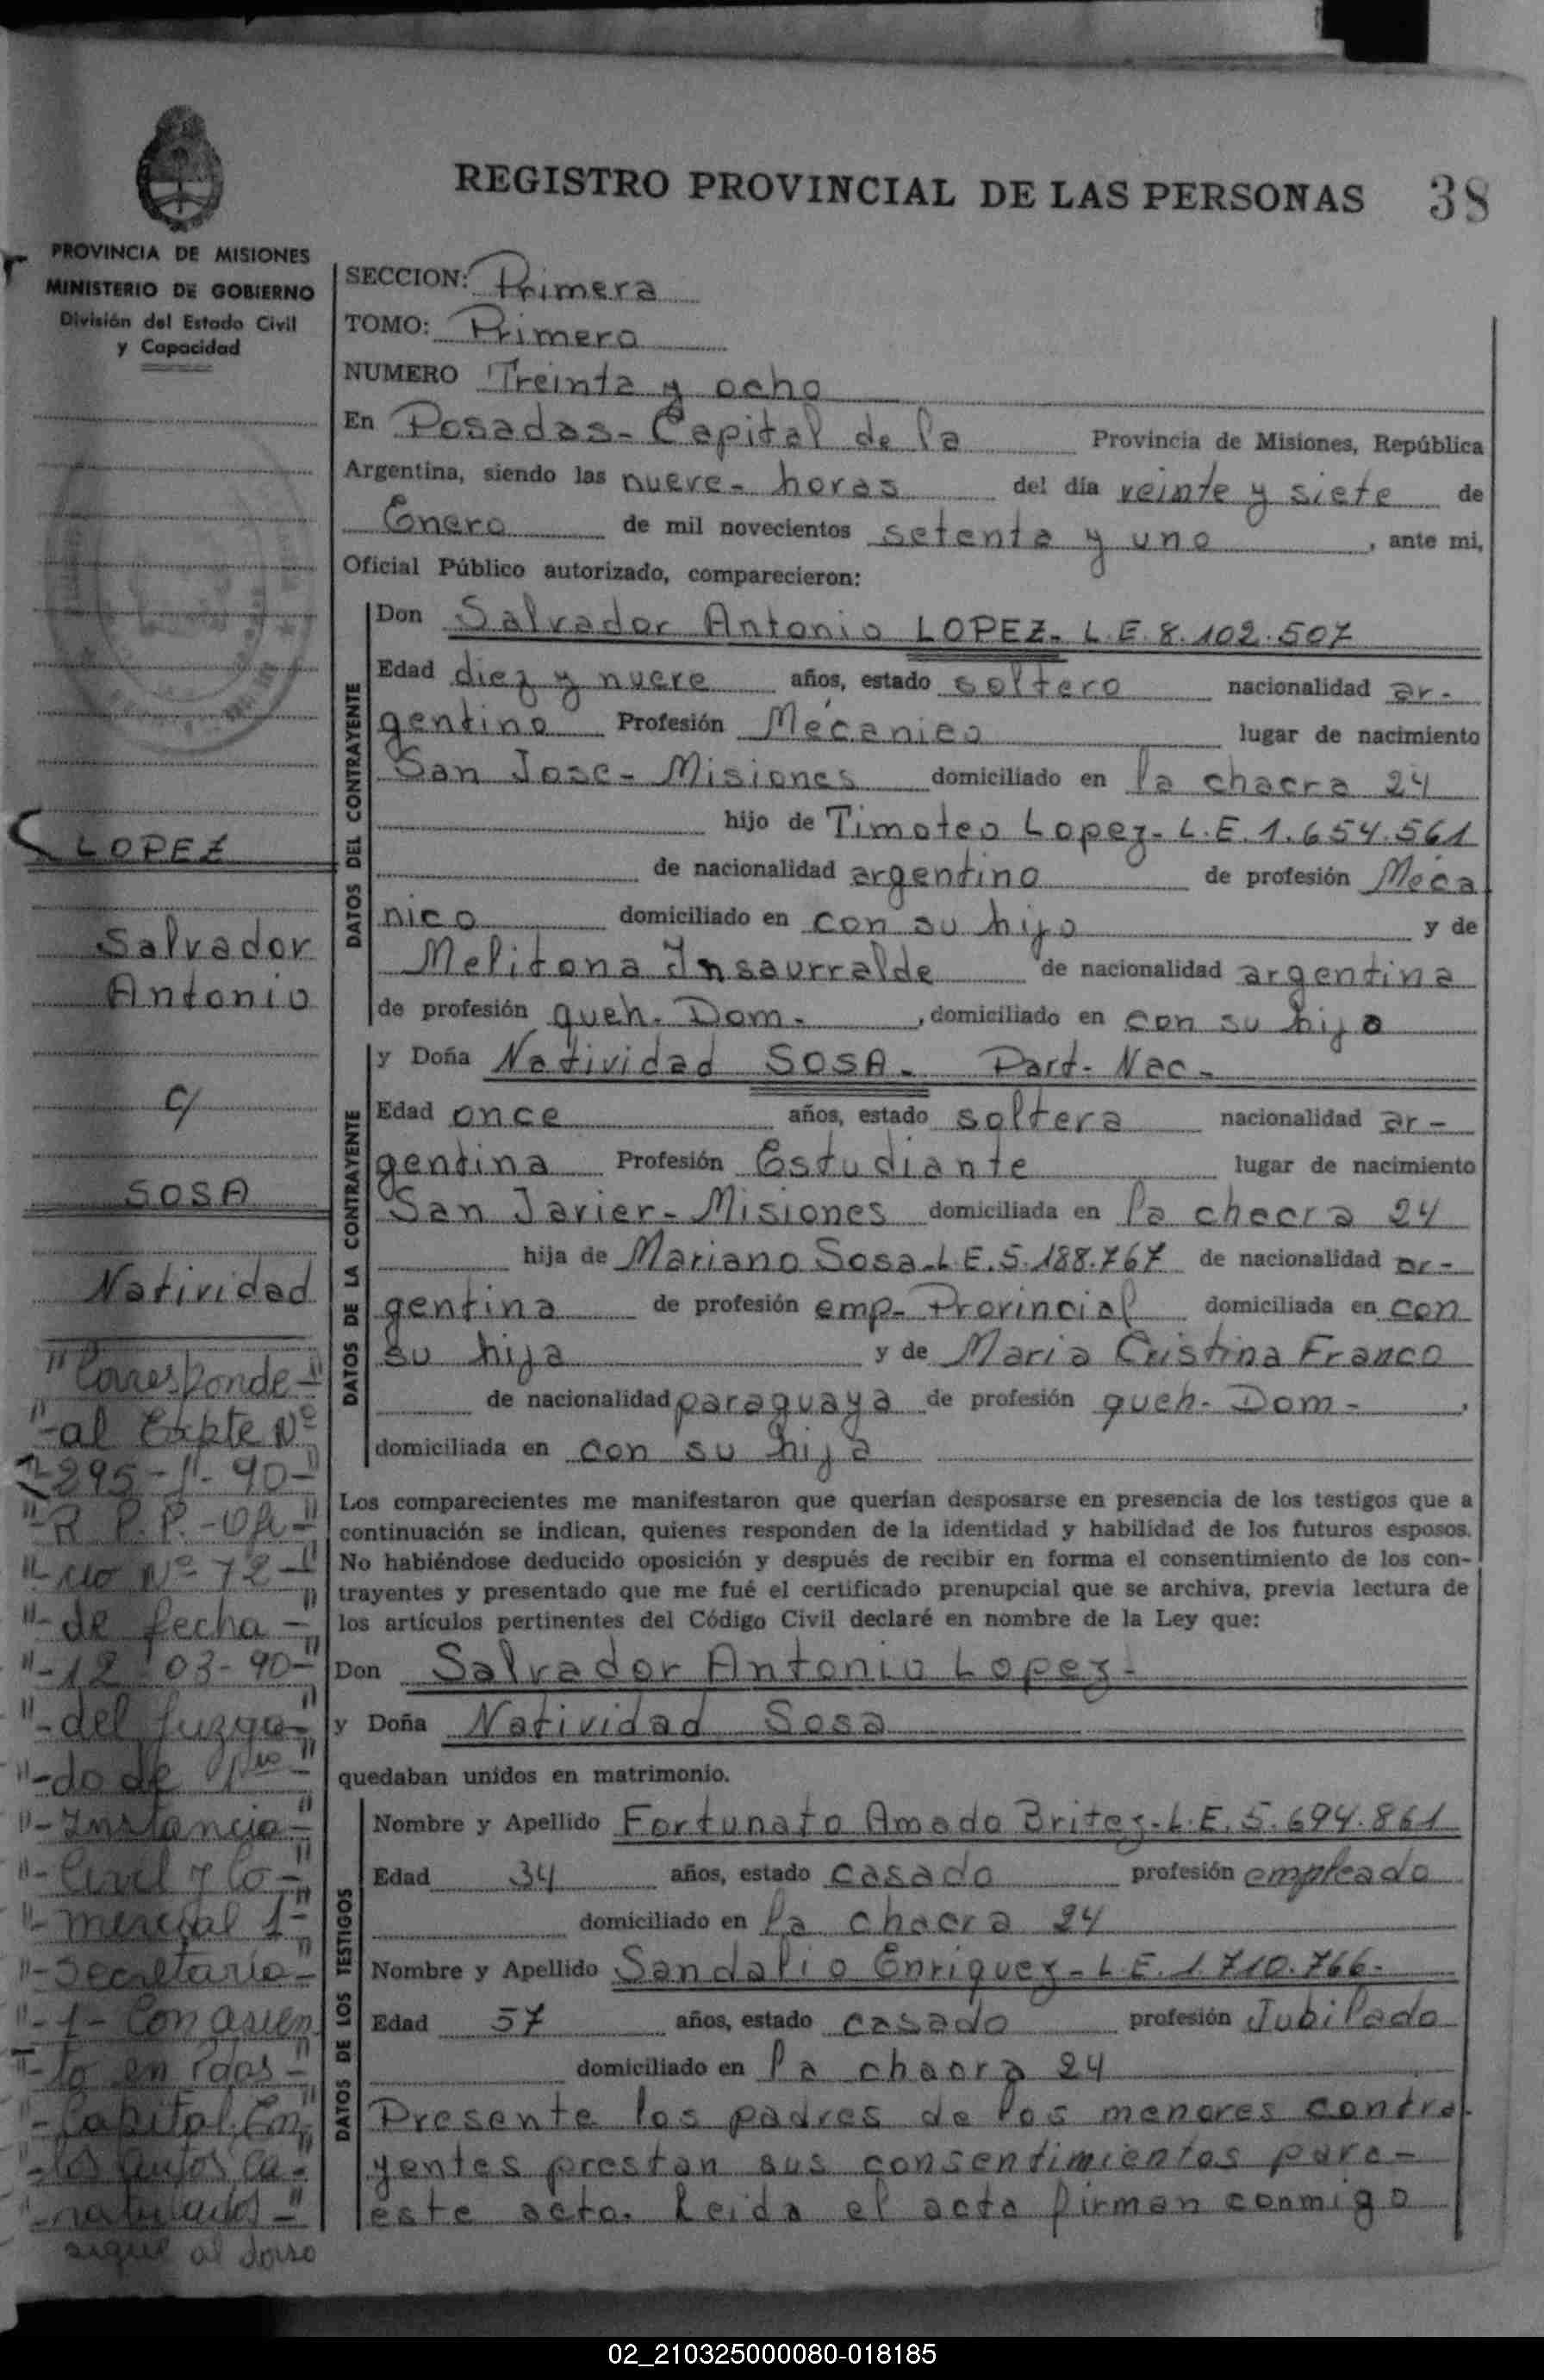 REGISTRO PROVINCIAL DE LAS PERSONAS 38
PROVINCIA DE MISIONES
MINISTERIO DE GOBIERNO
División del Estado Civil
y Capacidad
SECCION: Primera
TOMO: Primero
NUMERO Treinta y ocho
En Posadas- Capital de la Provincia de Misiones, República
Argentina, siendo las nueve- horas del día veinte y siete de
Enero de mil novecientos setenta y uno, ante mi,
Oficial Público autorizado, comparecieron:
DATOS DEL CONTRAYENTE
Don Salvador Antonio LOPEZ- L.E. 8.102.507
Edad diez y nueve años, estado soltero nacionalidad ar-
gentino Profesión Mécanico lugar de nacimiento
San Jose- Misiones domiciliado en la chacra 24
hijo de Timoteo Lopez- L.E. 1.654.561
de nacionalidad argentino de profesión Méca
nico domiciliado en con su hijo y de
Melitona Insaurralde de nacionalidad argentina
de profesión queh. Dom-, domiciliado en con su hijo
DATOS DE LA CONTRAYENTE
y Doña Natividad SOSA- Part- Nac-
Edad once años, estado soltera nacionalidad ar-
gentina Profesión Estudiante lugar de nacimiento
San Javier- Misiones domiciliada en la chacra 24
hija de Mariano Sosa-L.E. 5.188.767 de nacionalidad ar-
gentina de profesión emp- Provincial domiciliada en con
su hija y de Maria Cristina Franco
de nacionalidad paraguaya de profesión queh- Dom-,
domiciliada en con su hija
Los comparecientes me manifestaron que querían desposarse en presencia de los testigos que a
continuación se indican, quienes responden de la identidad y habilidad de los futuros esposos.
No habiéndose deducido oposición y después de recibir en forma el consentimiento de los con-
trayentes y presentado que me fué el certificado prenupcial que se archiva, previa lectura de
los artículos pertinentes del Código Civil declaré en nombre de la Ley que:
Don Salvador Antonio Lopez-
y Doña Natividad Sosa
quedaban unidos en matrimonio.
DATOS DE LOS TESTIGOS
Nombre y Apellido Fortunato Amado Britez-L.E. 5.694.861
Edad 34 años, estado casado profesión empleado
domiciliado en la chacra 24
Nombre y Apellido Sandalio Enriquez- L.E. 1.710.766-
Edad 57 años, estado casado profesión Jubilado
domiciliado en la chacra 24
Presente los padres de los menores contra-
yentes prestan sus consentimientos para-
este acto. Leida el acta firman conmigo
LOPEZ
Salvador
Antonio
c/
SOSA
Natividad
"Corresponde-"
"-al Expte Nº
295-"-90-"
"-R.P.P.-Ofi-"
"-cio Nº 72-"
"-de fecha-"
"-12-03-90-"
"-del Juzga-"
"-do de 1ra-"
"-Instancia-"
"-Civil y Co-"
"-mercial 1-"
"-Secretaría-"
"-1- Con asien
to en Pdas-"
"-Capital. En
"-los autos ca-"
"-ratulados-"
sigue al dorso
02_210325000080-018185